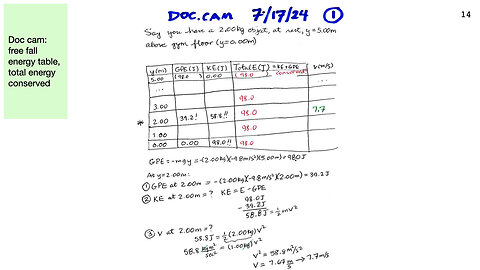 Doc cam:
free fall
energy table,
total energy
conserved
DOC.CAM 7/17/24 ①
14
Say you have a 2.00kg object, at rest, y=5.00m
above gym floor (y=0.00m)
y(m) GPE(J) KE(J) Total E(J) = KE+GPE v(m/s)
5.00 (98.0 0.00 (98.0 conserved!
...
3.00 98.0
* 2.00 39.2! 58.8!! 98.0 7.7
1.00 98.0
0.00 0.00 98.0!! 98.0
GPE = -mgy = -(2.00kg)(-9.8m/s²)(5.00m) = 98.0J
At y=2.00m:
① GPE at 2.00m = -(2.00kg)(-9.8m/s²)(2.00m) = 39.2J
② KE at 2.00m = ? KE = E - GPE
98.0J
-39.2J
58.8J = ½mv²
③ V at 2.00m = ?
58.8J = ½(2.00kg)v²
58.8 kg m²/sec² = (1.00kg)v²
v² = 58.8 m²/s²
V = 7.67 m/s → 7.7m/s